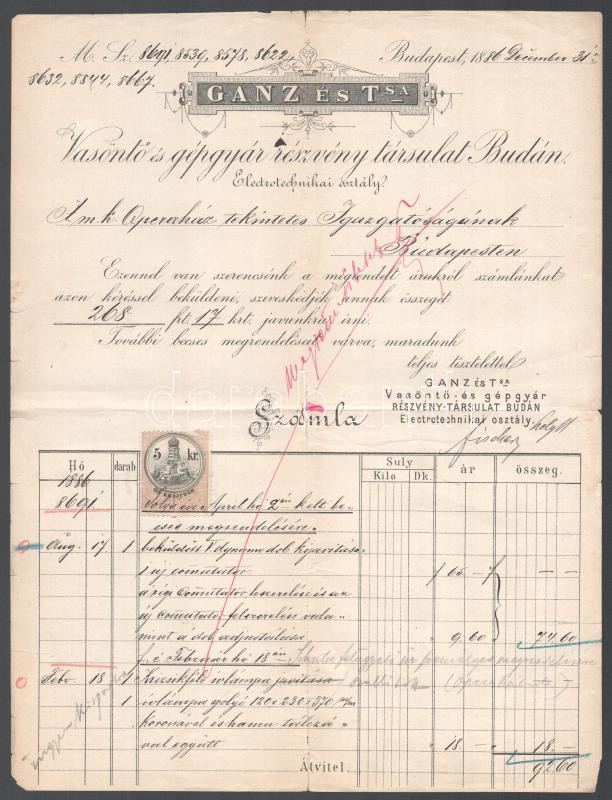 M. Sz. 8691, 8530, 8578, 8622,
Budapest, 1886 December 31én
8632, 8844, 8667.
GANZ ÉS TSA
Vasöntő és gépgyár részvény társulat Budán.
Electrotechnikai osztály.
A m. k. Operaház tekintetes Igazgatóságának
Budapesten
Ezennel van szerencsénk a megrendelt árukról számlánkat
azon kéréssel beküldeni, sziveskedjék annak összegét
268 frt. 17 krt. javunkra irni.
További becses megrendeléseit várva, maradunk
teljes tisztelettel
GANZ ÉS TSA
Vasöntö-és gépgyár
RÉSZVÉNY-TÁRSULAT BUDÁN
Electrotechnikai osztály.
Számla
Hó darab Suly ár összeg.
Kilo Dk.
1886
5 kr.
8691. Folyó évi April hó 2án kelt be-
cses megrendelésére
Aug. 17 1 beküldött V dynamo dob kijavitása
1 új comutator f 65.-
a régi comutator leszerelése és az
új comutator felszerelése vala-
mint a dob adjustálása " 9.60 74.60
f. é. Február hó 18án
Febr. 18 1 Krizsikféle ivlámpa javitása
1 ivlámpa golyó 120 x 230 x 370 m/m
koronával és hamu tálczá-
val együtt " 18.- 18.-
Átvitel. 92.60